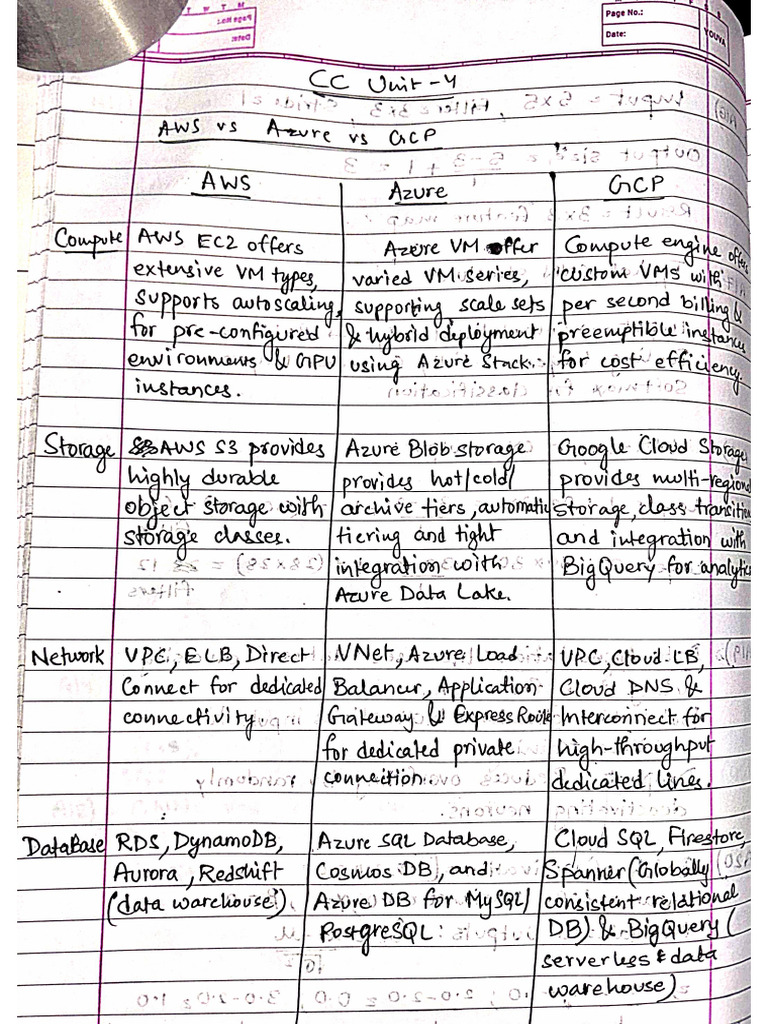 Page No.:
Date:
YOUVA
CC Unit-4
AWS vs Azure vs GCP
AWS
Azure
GCP
Compute
AWS EC2 offers
extensive VM types,
supports autoscaling,
for pre-configured
environments & GPU
instances.
Azure VM offer
varied VM series,
supporting scale sets
& hybrid deployment
using Azure Stack.
Compute engine offers
custom VMs with
per second billing &
preemptible instances
for cost efficiency.
Storage
AWS S3 provides
highly durable
object storage with
storage classes.
Azure Blob storage
provides hot/cold/
archive tiers, automatic
tiering and tight
integration with
Azure Data Lake.
Google Cloud Storage
provides multi-regional
storage, class transition
and integration with
BigQuery for analytics
Network
VPC, ELB, Direct
Connect for dedicated
connectivity
VNet, Azure Load
Balancer, Application
Gateway & Express Route
for dedicated private
connection.
VPC, Cloud LB,
Cloud DNS &
Interconnect for
high-throughput
dedicated lines.
DataBase
RDS, DynamoDB,
Aurora, Redshift
(data warehouse).
Azure SQL Database,
Cosmos DB, and
Azure DB for MySQL/
PostgreSQL.
Cloud SQL, Firestore,
Spanner (Globally
consistent relational
DB) & BigQuery (
serverless & data
warehouse)